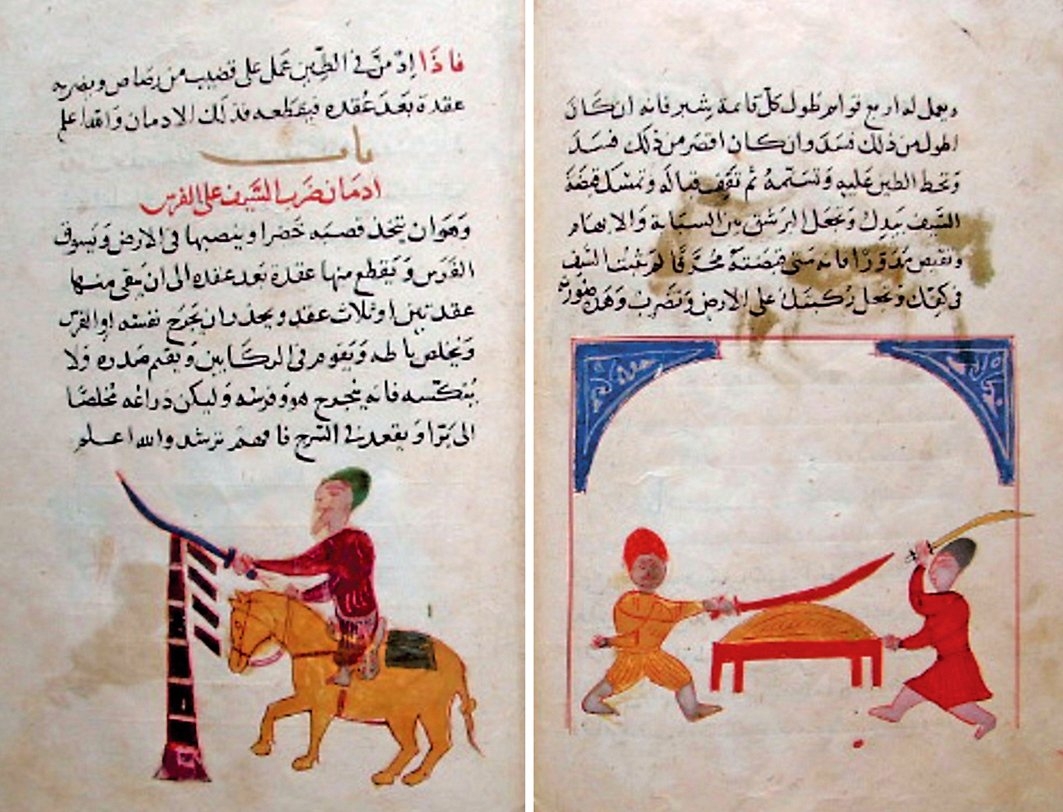 ويعمل له اربع قوايم طول كل قايمة شبر فانه ان كان
اطول من ذلك فسد وان كان اقصر من ذلك فسد
وتحط الطين عليه وتسنمه ثم تقف قباله وتمسك قبضة
السيف بيدك وتجعل البرشق بين السبابة والابهام
وتقبض مدورا فانه متى قبضته محرفا لم يثبت السيف
في كفك وتجعل ركبتك على الارض وتضرب وهذه صورته
فاذا ادمن في الطين عمل على قضيب من رصاص ويضربه
عقدة بعد عقده فيقطعه فذلك الادمان والله اعلم
باب
ادمان ضرب السيف على الفرس
وهو ان يتخذ قصبه خضرا وينصبها في الارض ويسوق
الفرس ويقطع منها عقدة بعد عقده الى ان يبقى منها
عقدتين او ثلاث عقد ويحذر ان يجرح نفسه او الفرس
ويخلص باطه ويقوم في الركابين ويقم صدره ولا
ينكسه فانه ينجرح هو وفرسه وليكن دراعه مخلصا
الى برا ويقعد في السرج فافهم ترشد والله اعلم